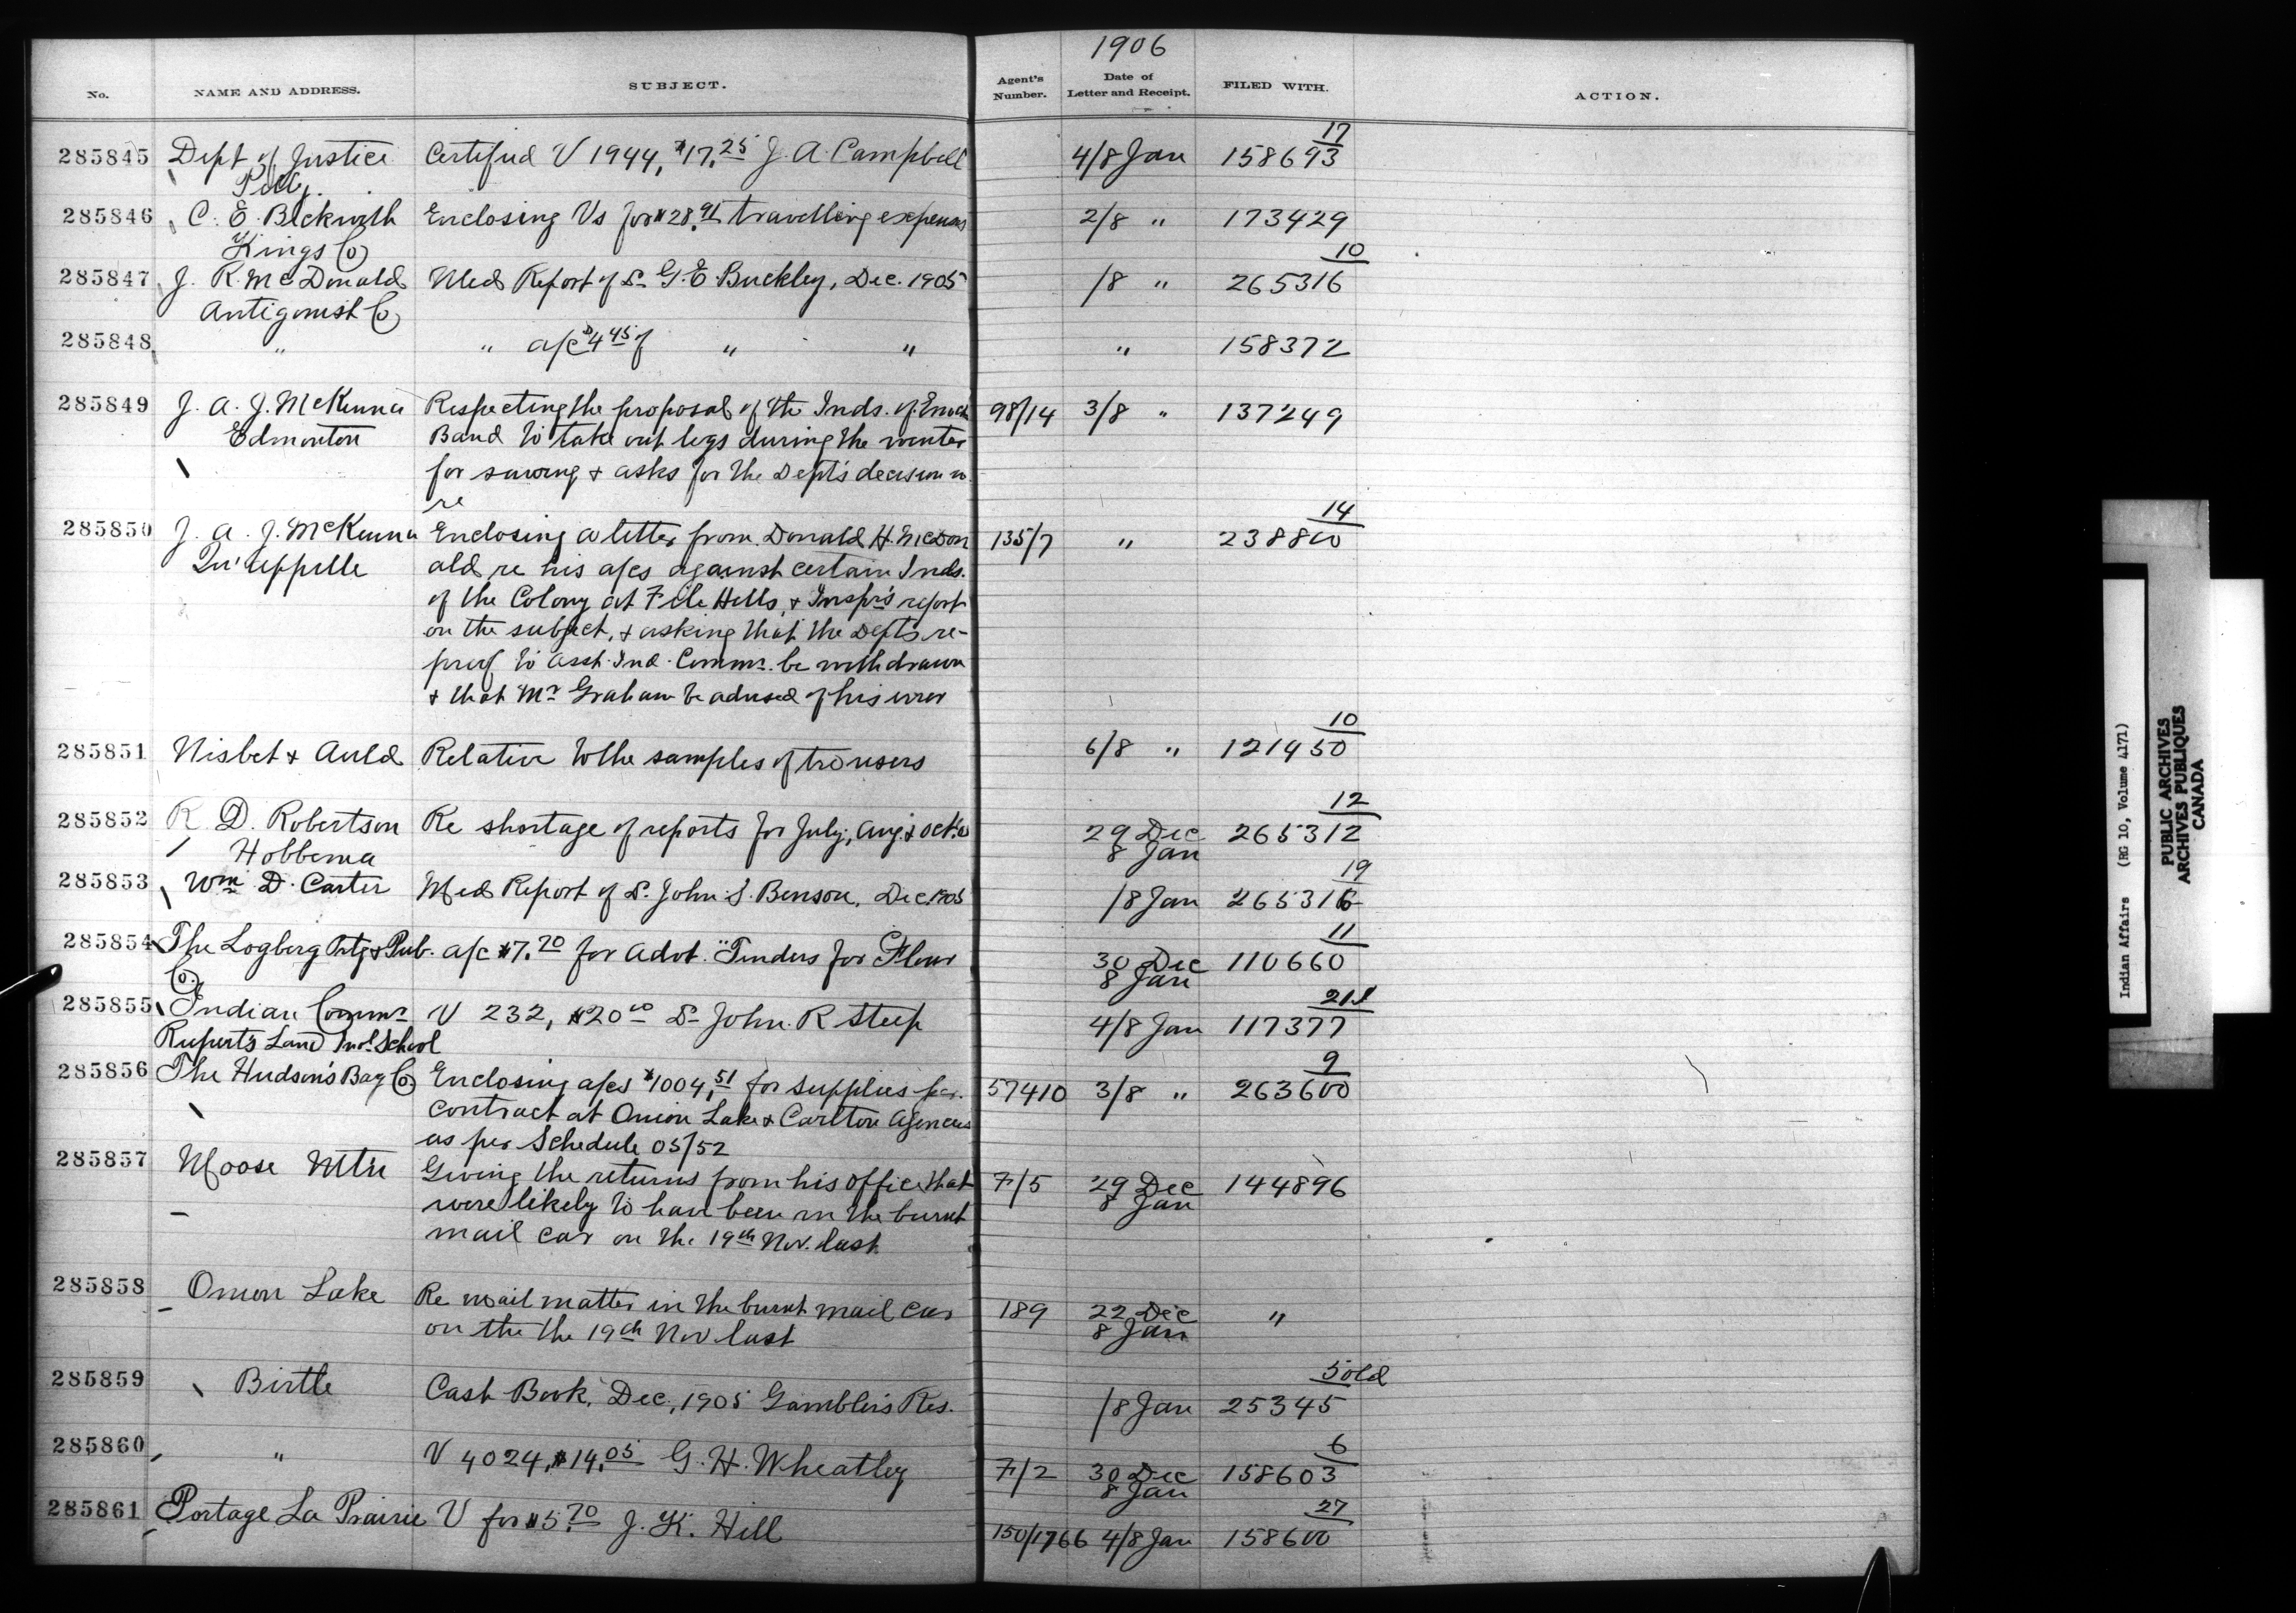 1906
No. NAME AND ADDRESS. SUBJECT. Agent's Number. Date of Letter and Receipt. FILED WITH. ACTION.
17
285845 Dept of Justice Certified V 1944, $17.25 J. A. Campbell 4/8 Jan 158693
285846 C. E. Beckwith Enclosing Vs for $28.91 travelling expenses 2/8 " 173429
Kings Co
10
285847 J. R. McDonald Med Report of Dr G. E. Buckley, Dec. 1905 /8 " 265316
Antigonish Co
285848 " " a/c $4.45 of " " " 158372
285849 J. A. J. McKenna Respecting the proposal of the Inds. of Enoch 98/14 3/8 " 137249
Edmonton Band to take out logs during the winter
for sawing & asks for the Dept's decision in
re
14
285850 J. A. J. McKenna Enclosing a letter from Donald H. McDon 135/7 " 238800
Qu'appelle ald re his a/cs against certain Inds.
of the Colony at File Hills, & Inspr's report
on the subject, & asking that the Depts re-
proof to Asst. Ind. Commr. be withdrawn
& that Mr Graham be advised of his error
10
285851 Nisbet & Auld Relative to the samples of trousers 6/8 " 121450
12
285852 R. D. Robertson Re shortage of reports for July, Aug & Oct. 29 Dec 265312
Hobbema 8 Jan
19
285853 Wm D. Carter Med Report of Dr. John S. Benson, Dec 1905 /8 Jan 265316
11
285854 The Logberg Prtg & Pub. a/c $7.70 for Advt. "Tenders for Flour 30 Dec 110660
Co. 8 Jan
21
285855 Indian Commr V 232, $20.00 Dr John R Steep 4/8 Jan 117377
Rupert's Land Indl. School
9
285856 The Hudson's Bay Co Enclosing a/cs $1004.51 for supplies per. 57410 3/8 " 263600
contract at Onion Lake & Carlton Agencies
as per Schedule 05/52
285857 Moose Mtn Giving the returns from his office that F/5 29 Dec 144896
were likely to have been in the burnt 8 Jan
mail car on the 19th Nov. last
285858 Onion Lake Re mail matter in the burnt mail car 189 22 Dec "
on the the 19th Nov last 8 Jan
5 old
285859 Birtle Cash Book, Dec, 1905 Gamblers Res. /8 Jan 25345
6
285860 " V 4024, $14.05 G. H. Wheatley F/2 30 Dec 158603
8 Jan
27
285861 Portage La Prairie V for $5.70 J. K. Hill 150/1766 4/8 Jan 158600
Indian Affairs (RG 10, Volume 4171)
PUBLIC ARCHIVES
ARCHIVES PUBLIQUES
CANADA